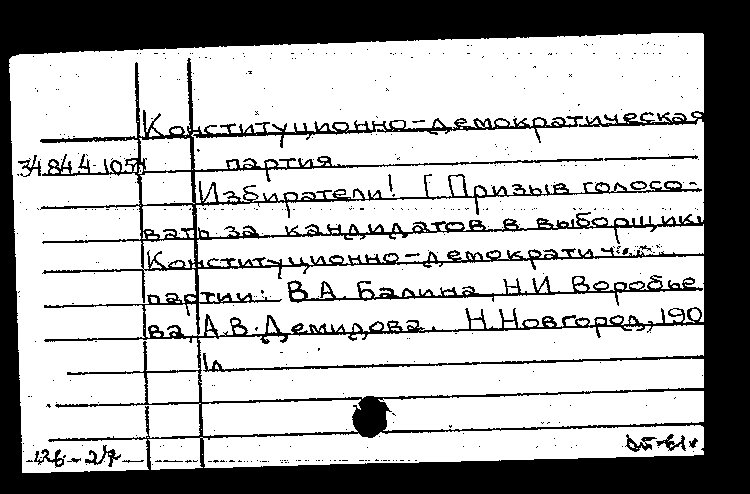 Конституционно-демократическая
34.84.4-105
партия.
Избиратели! [Призыв голосо-
вать за кандидатов в выборщики
Конституционно-демократич
партии: В.А. Балина, Н.И. Воробье
ва, А.В. Демидова. Н.Новгород, 190
1л